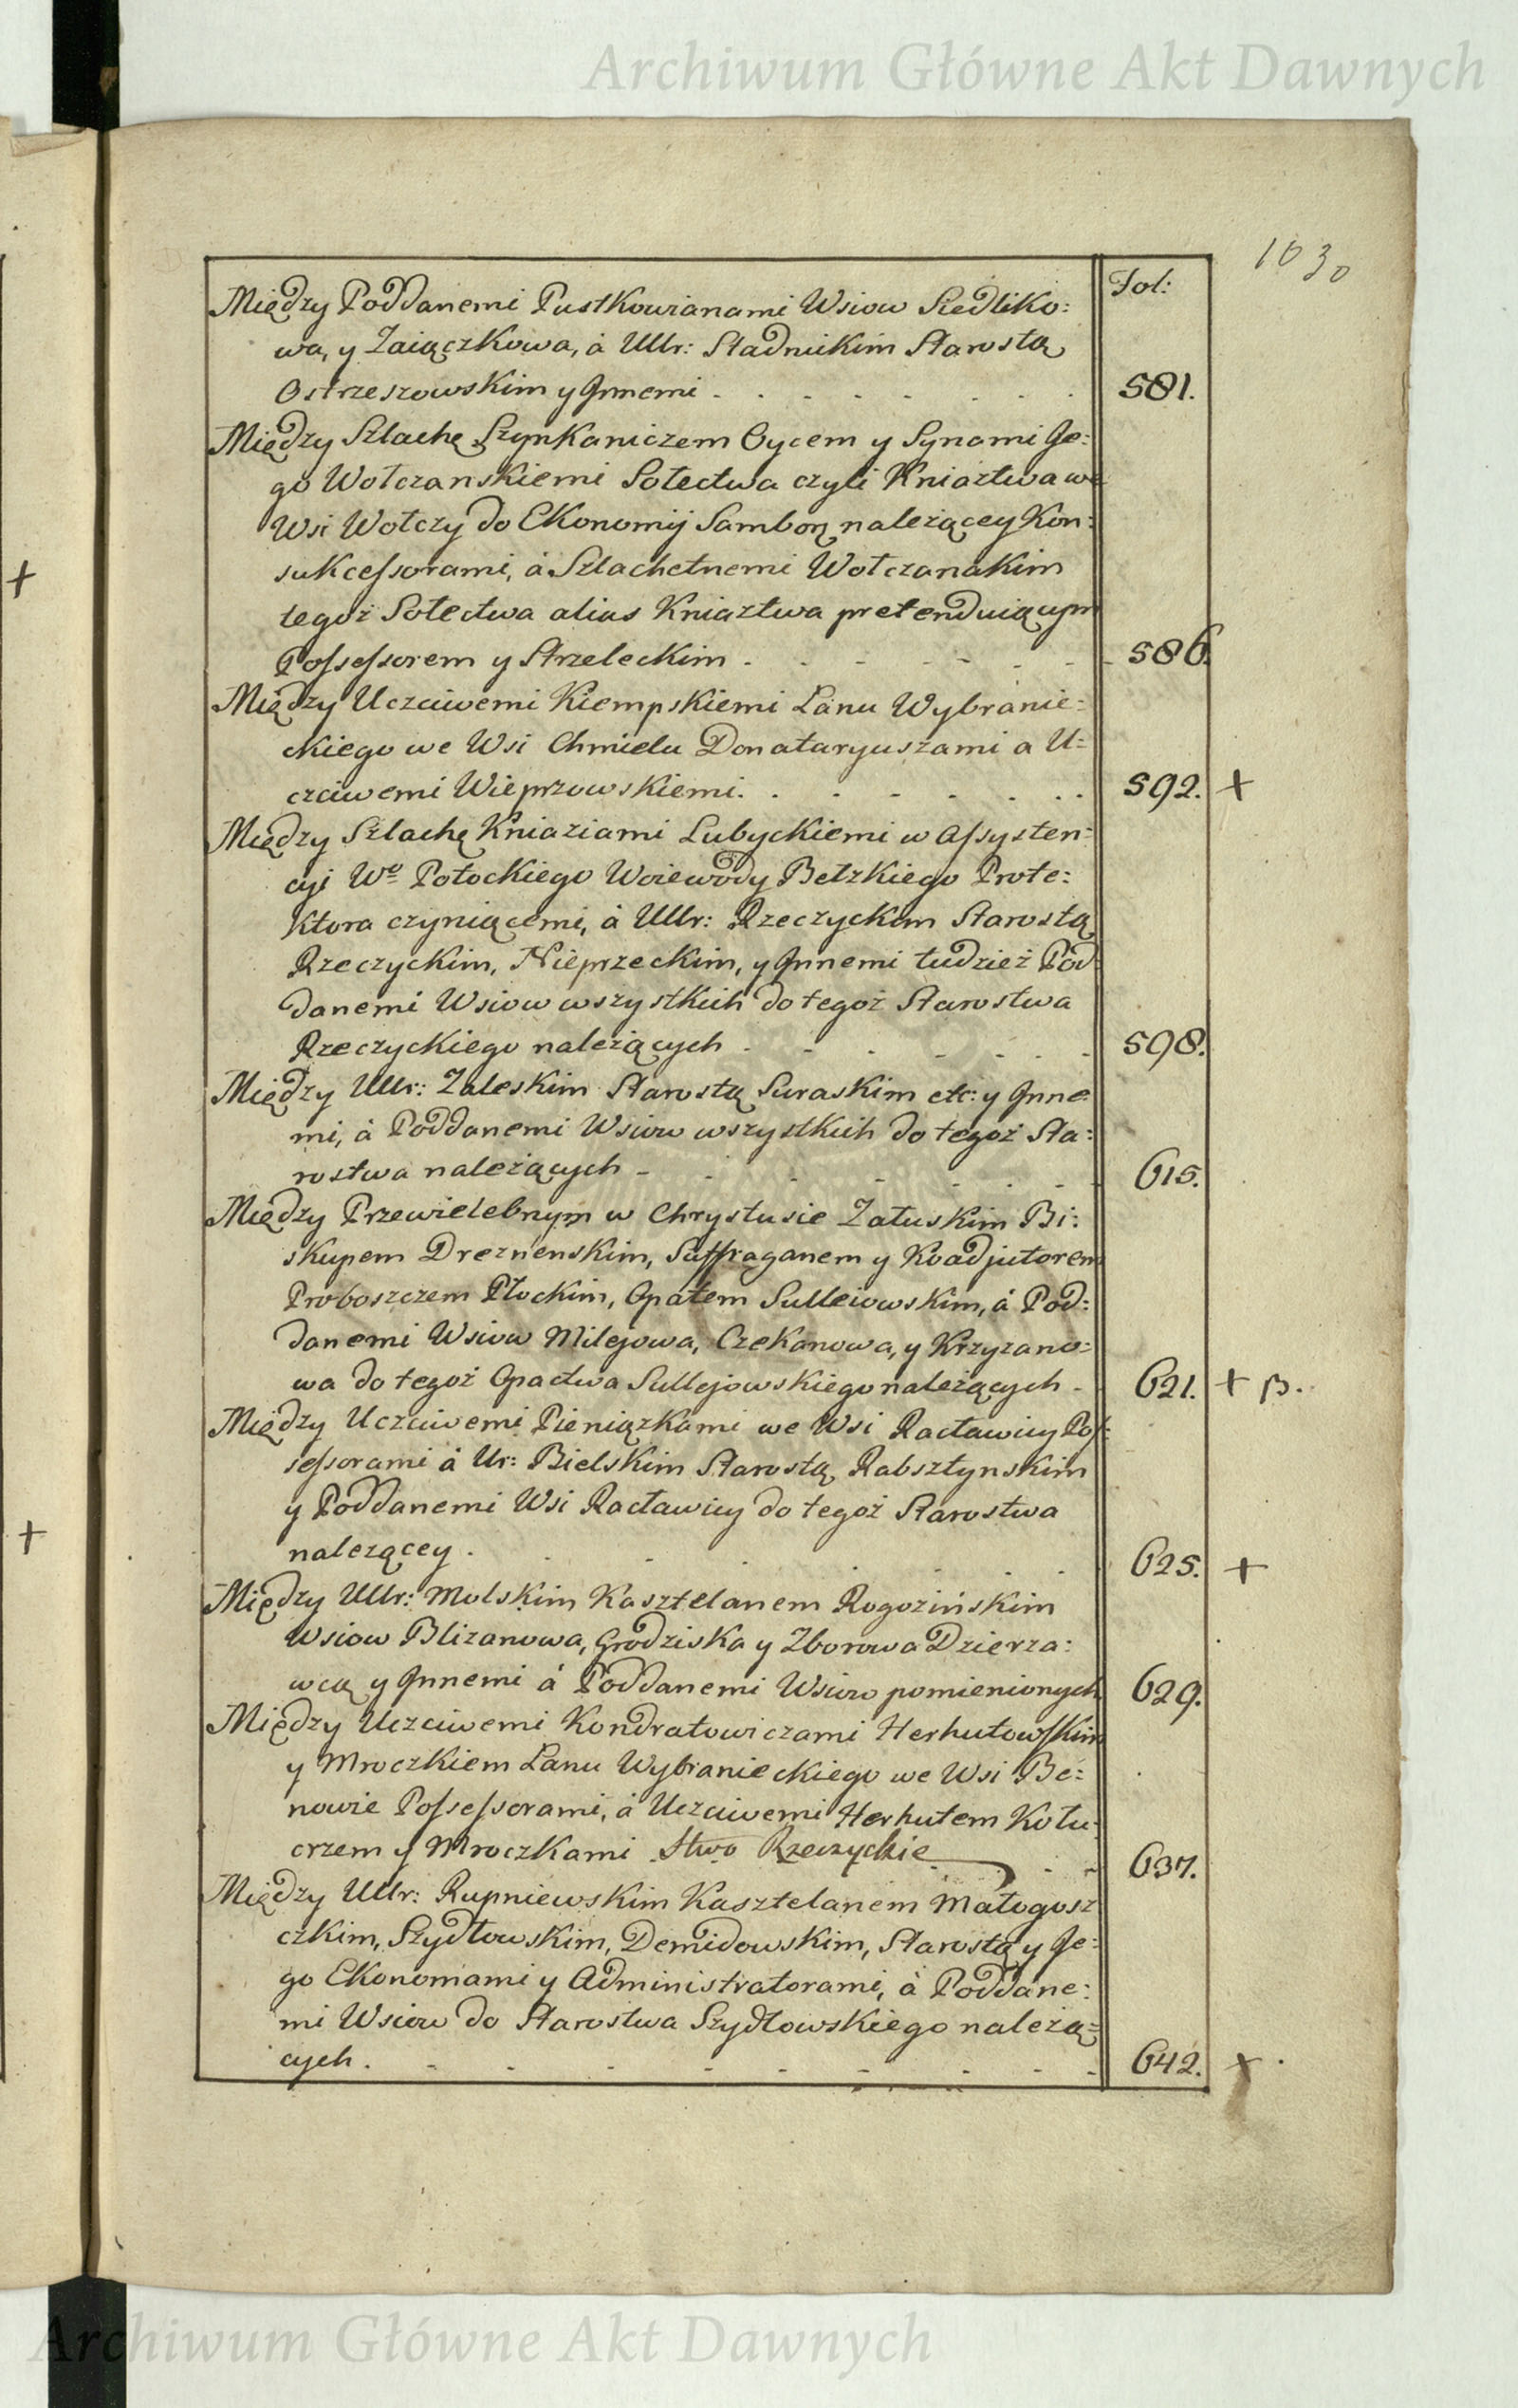 Archiwum Główne Akt Dawnych
1030
Fol:
Między Poddanemi Pustkowianami Wsiow Siedliko:
wa, y Zaiączkowa, á Ullr: Stadnickim Starostą
Ostrzeszowskim y Jnnemi . . . . . . . . 581.
Między Szlachę Szynkaniczem Oycem y Synami Je:
go Wołczanskiemi Sołectwa czyli Kniaztwa we
Wsi Wołczy do Ekonomij Sambor: należącey Kon:
sukcessorami, á Szlachetnemi Wołczanskim
tegoż Sołectwa alias Kniaztwa pretenduiącym
Possessorem y Strzeleckim . - - - - - - 586.
Między Uczciwemi Kiempskiemi Łanu Wybranie=
ckiego we Wsi Chmielu Donataryuszami a U=
czciwemi Wieprzowskiemi. . . - - . . . 592. +
Między Szlachę Kniaziami Lubyckiemi w Assysten:
cyi Wo Potockiego Woiewody Bełzkiego Prote:
ktora czyniącemi, á Ullr: Rzeczyckim Starostą
Rzeczyckim, Nieprzeckim, y Jnnemi tudzież Pod
danemi Wsiow wszystkich do tegoż Starostwa
Rzeczyckiego należących - - - - . . - 598.
Między Ullr: Zaleskim Starostą Suraskim etc: y Jnne
mi, á Poddanemi Wsiow wszystkich do tegoż Sta:
rostwa należących - - - - - . - - 615.
Między Przewielebnym w Chrystusie Załuskim Bi:
skupem Dreznenskim, Suffraganem y Koadjutorem
Proboszczem Płockim, Opatem Sulleiowskim, á Pod:
danemi Wsiow Milejowa, Czekanowa, y Krzyzano=
wa do tegoż Opactwa Sullejowskiego należących - 621. + p.
Między Uczciwemi Pieniązkami we Wsi Racławicy Pos:
sessorami á Ur: Bielskim Starostą Rabsztynskim
y Poddanemi Wsi Racławicy do tegoż Starostwa
nalezącey . . . . . . . 625. +
Między Ullr: Molskim Kasztelanem Rogozińskim
Wsiow Blizanowa, Grodziska y Zborowa Dzierza:
wcą y Jnnemi á Poddanemi Wsiow pomienionych 629.
Między Uczciwemi Kondratowiczami Herhutowskim
y Mroczkiem Łanu Wybranieckiego we Wsi Be:
nowie Possessorami, á Uczciwemi Herhutem Kołu:
czrem y Mroczkami Stwo Rzeczyckie . . - 637.
Między Ullr: Rupniewskim Kasztelanem Małogosz
czkim, Szydłowskim, Demidowskim, Starostą y Je:
go Ekonomami y Administratorami, á Poddane:
mi Wsiow do Starostwa Szydłowskiego należą=
cych . - - - - - - - - 642. +
Archiwum Główne Akt Dawnych